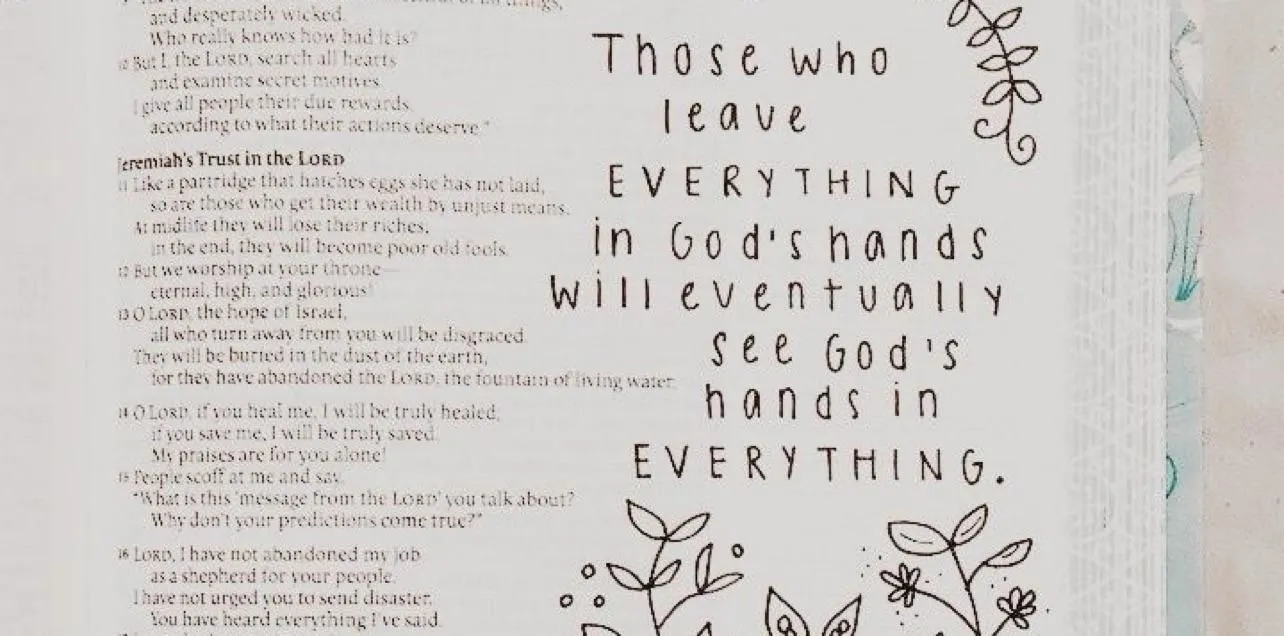 and desperately wicked.
Who really knows how bad it is?
10 But I, the LORD, search all hearts
and examine secret motives.
I give all people their due rewards,
according to what their actions deserve."
Jeremiah's Trust in the LORD
11 Like a partridge that hatches eggs she has not laid,
so are those who get their wealth by unjust means.
At midlife they will lose their riches;
in the end, they will become poor old fools.
12 But we worship at your throne—
eternal, high, and glorious!
13 O LORD, the hope of Israel,
all who turn away from you will be disgraced.
They will be buried in the dust of the earth,
for they have abandoned the LORD, the fountain of living water.
14 O LORD, if you heal me, I will be truly healed;
if you save me, I will be truly saved.
My praises are for you alone!
15 People scoff at me and say,
"What is this 'message from the LORD' you talk about?
Why don't your predictions come true?"
16 LORD, I have not abandoned my job
as a shepherd for your people.
I have not urged you to send disaster.
You have heard everything I've said.
Those who
leave
EVERYTHING
in God's hands
will eventually
see God's
hands in
EVERYTHING.